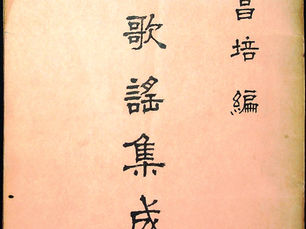 昌培編
歌謡集成